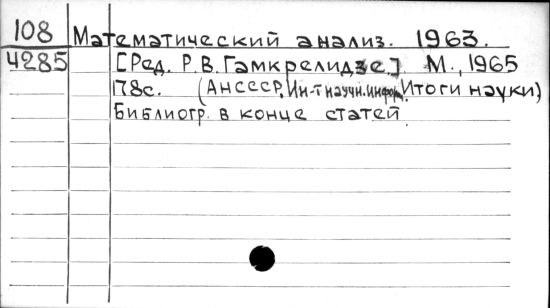 108 Математический анализ. 1963.
4285 [Ред. Р.В. Гамкрелидзе.] М., 1965
178с. (АНСССР, Ин-т научн. информ. Итоги науки)
Библиогр. в конце статей